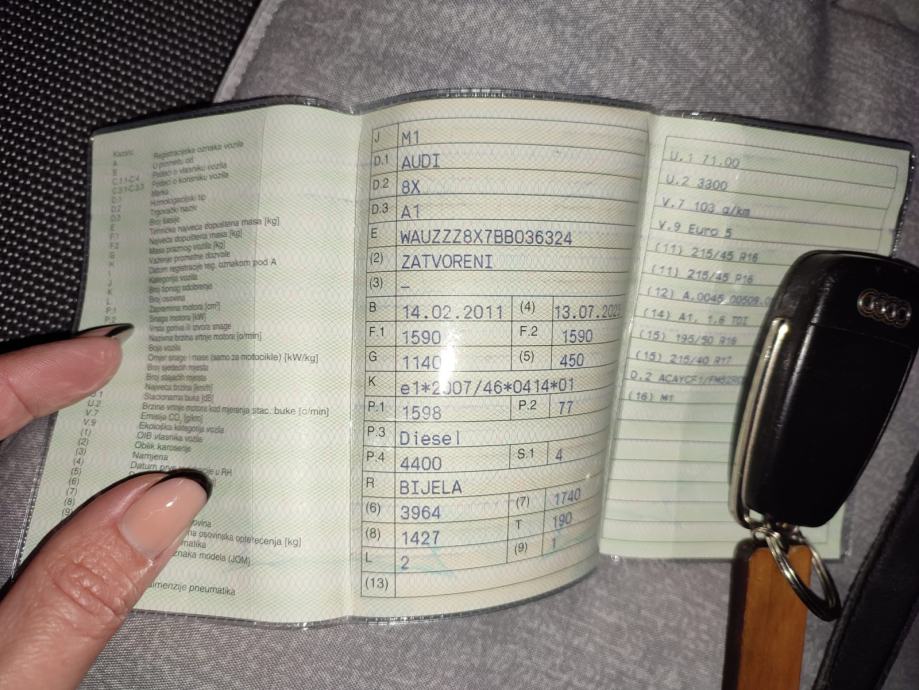 Kazalo:
A Registracijska oznaka vozila
B U prometu od
C.1.1-C.1.4 Podaci o vlasniku vozila
C.3.1-C.3.3 Podaci o korisniku vozila
D.1 Marka
D.2 Homologacijski tip
D.3 Trgovački naziv
E Broj šasije
F.1 Tehnička najveća dopuštena masa [kg]
F.2 Najveća dopuštena masa [kg]
G Masa praznog vozila [kg]
H Važenje prometne dozvole
I Datum registracije reg. oznakom pod A
J Kategorija vozila
K Broj tipnog odobrenja
L Broj osovina
P.1 Zapremina motora [cm³]
P.2 Snaga motora [kW]
Vrsta goriva ili izvora snage
Nazivna brzina vrtnje motora [o/min]
Boja vozila
Omjer snage i mase (samo za motocikle) [kW/kg]
Broj sjedećih mjesta
Broj stajaćih mjesta
Najveća brzina [km/h]
Stacionarna buka [dB]
U.2 Brzina vrtnje motora kod mjerenja stac. buke [o/min]
V.7 Emisija CO₂ [g/km]
V.9 Ekološka kategorija vozila
(1) OIB vlasnika vozila
(2) Oblik karoserije
(3) Namjena
(4) Datum prve u RH
(5)
(6)
(7)
(8)
osovinsko opterećenja [kg]
oznaka modela (JOM)
dimenzije pneumatika
J M1
D.1 AUDI
D.2 8X
D.3 A1
E WAUZZZ8X7BB036324
(2) ZATVORENI
(3) –
B 14.02.2011 (4) 13.07.
F.1 1590 F.2 1590
G 1140 (5) 450
K e1*2007/46*0414*01
P.1 1598 P.2 77
P.3 Diesel
P.4 4400 S.1 4
R BIJELA
(6) 3964 (7) 1740
(8) 1427 T 190
L 2 (9) 1
(13)
U.1 71.00
U.2 3300
V.7 103 g/km
V.9 Euro 5
(11) 215/45 R16
(11) 215/45 R16
(12)
(14) A1, 1.6 TDI
(15) 195/50 R16
(15) 215/40 R17
D.2
(16) M1